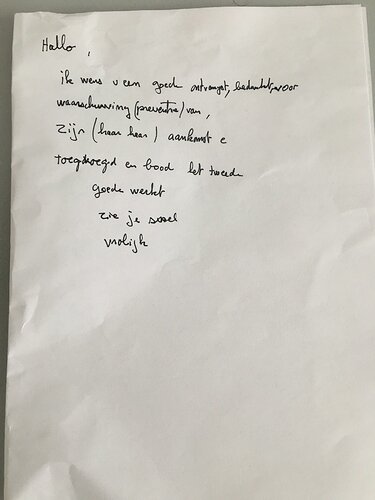 Hallo ,
ik wens u een goede ontvangst, bedankt voor
waarschuwing (preventie) van,
Zijn (haar haar) aankomst e
toegevoegd en bood het tweede
goede werkt
zie je snel
vrolijk